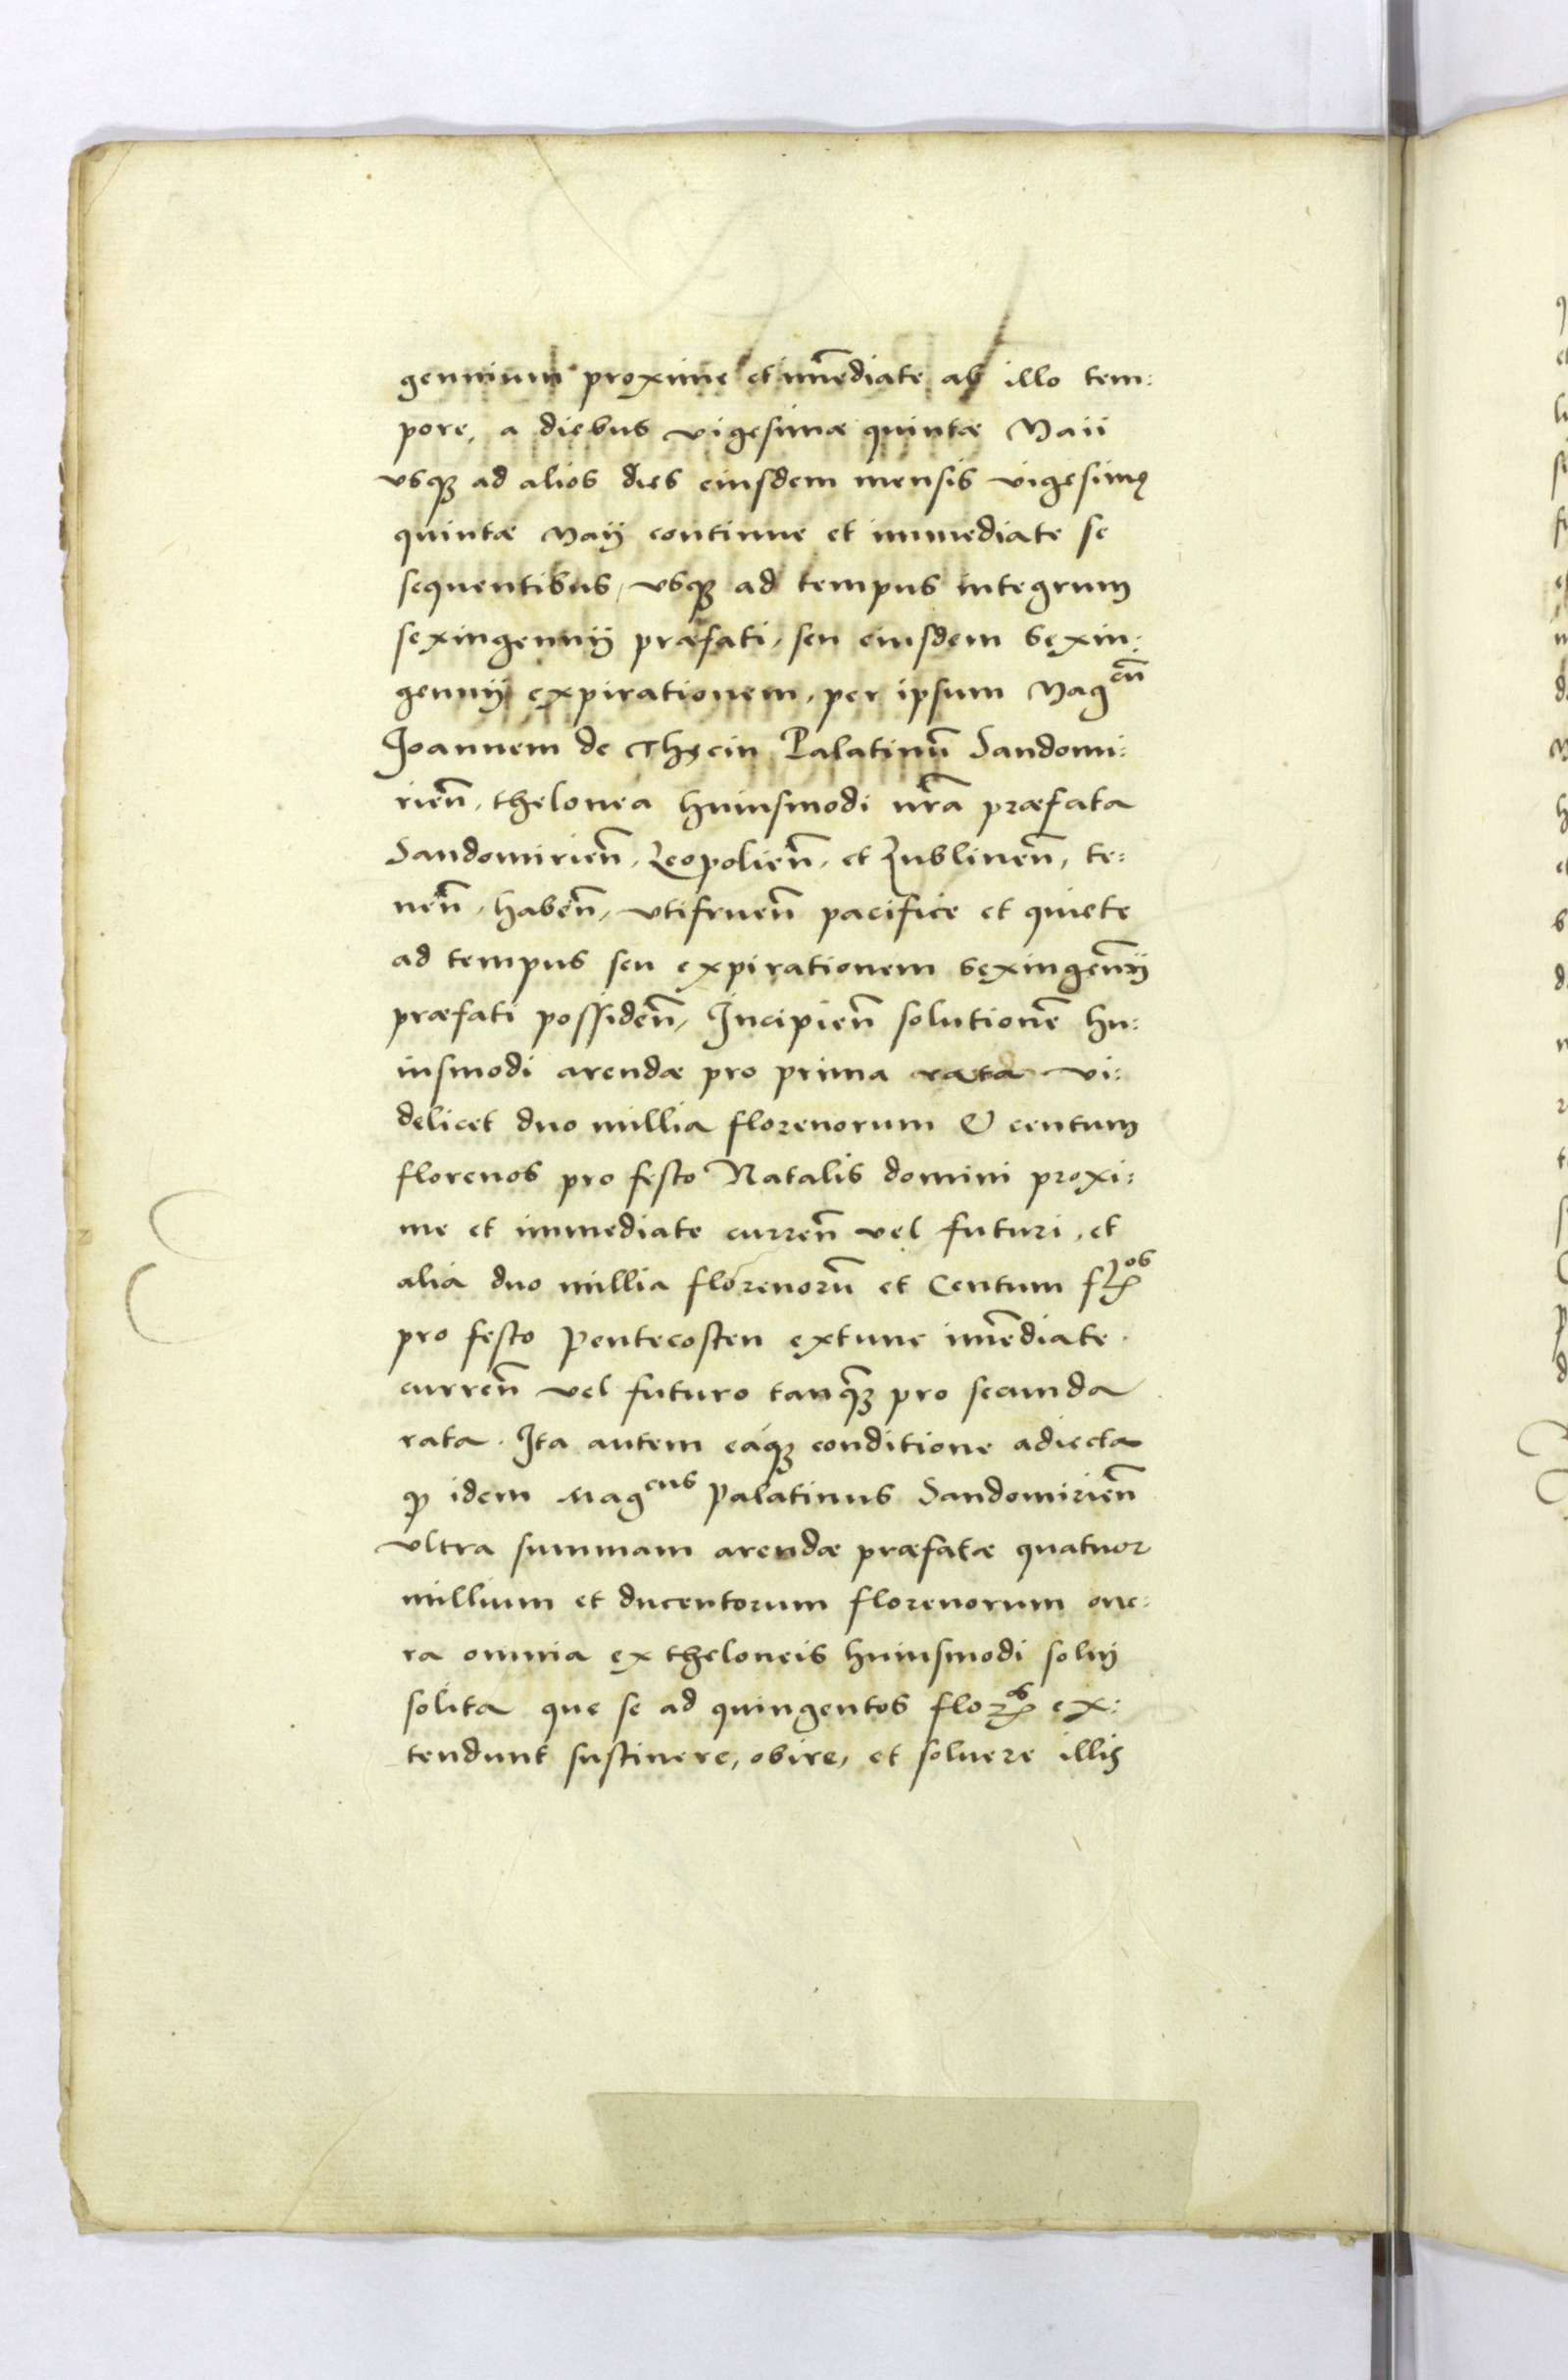 gennium proxime et im̄ediate ab illo tem:
pore, a diebus vigesimæ quintæ Maii
vsq₃ ad alios dies eiusdem mensis vigesimę
quintæ Maÿ continue et immediate se
sequentibus, vsq₃ ad tempus integrum
sexingennÿ præfati, seu eiusdem sexin:
gennÿ expirationem, per ipsum Mag^cū
Joannem de Thęcin Palatinū Sandomi:
rien̄, thelonea huiusmodi nr̄a præfata
Sandomirien̄, Leopolien̄, et Lublinen̄, te:
nen̄, haben̄, vtifruen̄ pacifice et quiete
ad tempus seu expirationem sexingen̄ÿ
præfati possiden̄, Incipien̄ solutionē hu:
iusmodi arendæ pro prima rata vi:
delicet duo millia florenorum & centum
florenos pro festo Natalis domini proxi:
me et immediate curren̄ vel futuri, et
alia duo millia florenorū et Centum flꝝ^os
pro festo Pentecosten extunc im̄ediate
curren̄ vel futuro tanq̄₃ pro secunda
rata. Ita autem eáq₃ conditione adiecta
ꝙ idem Mag^cus Palatinus Sandomirien̄
vltra summam arendæ præfatæ quatuor
millium et ducentorum florenorum one:
ra omnia ex theloneis huiusmodi solvj
solita que se ad quingentos floꝝ^os ex:
tendunt sustinere, obire, et soluere illis